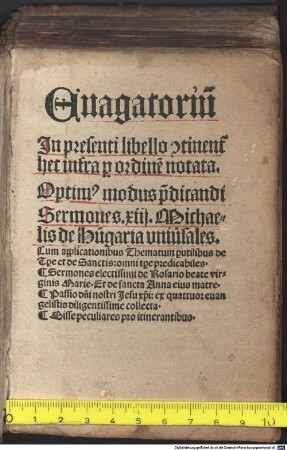 Euagatoriū
In presenti libello ↄtinent᷑
hec infra ꝑ ordinē notata.
Optimꝰ modus p̄dicandi
Sermones .xiij. Michae-
lis de Hūgaria vniūsales.
Cum applicationibus Thematum putilibus de
Tpe et de Sanctis: omni tpe predicabiles.
¶ Sermones electissimi de Rosario beate vir-
ginis Marie. Et de sancta Anna eius matre.
¶ Passio dn̄i nostri Jesu xp̄i: ex quattuor euan
gelistis diligentissime collecta.
¶ Misse peculiares pro itinerantibus.
0 1 2 3 4 5 6 7 8 9 10